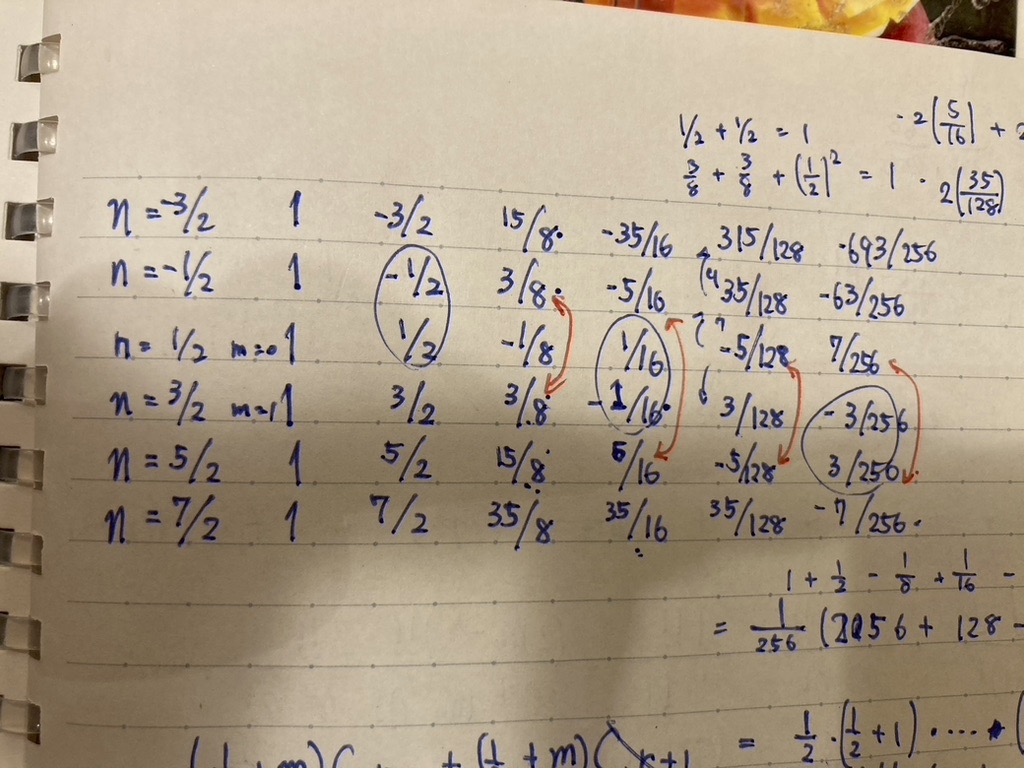 1/2 + 1/2 = 1
- 2(5/16) +
3/8 + 3/8 + (1/2)^2 = 1 - 2(35/128)
n = -3/2 1 -3/2 15/8 -35/16 315/128 -693/256
n = -1/2 1 -1/2 3/8 -5/16 35/128 -63/256
n = 1/2 m=0 1 1/2 -1/8 1/16 -5/128 7/256
n = 3/2 m=1 1 3/2 3/8 -1/16 3/128 -3/256
n = 5/2 1 5/2 15/8 5/16 -5/128 3/256
n = 7/2 1 7/2 35/8 35/16 35/128 -7/256
1 + 1/2 - 1/8 + 1/16 -
= 1/256 (256 + 128 -
= 1/2 · (1/2 + 1) ·····
+ (1/2 + m)